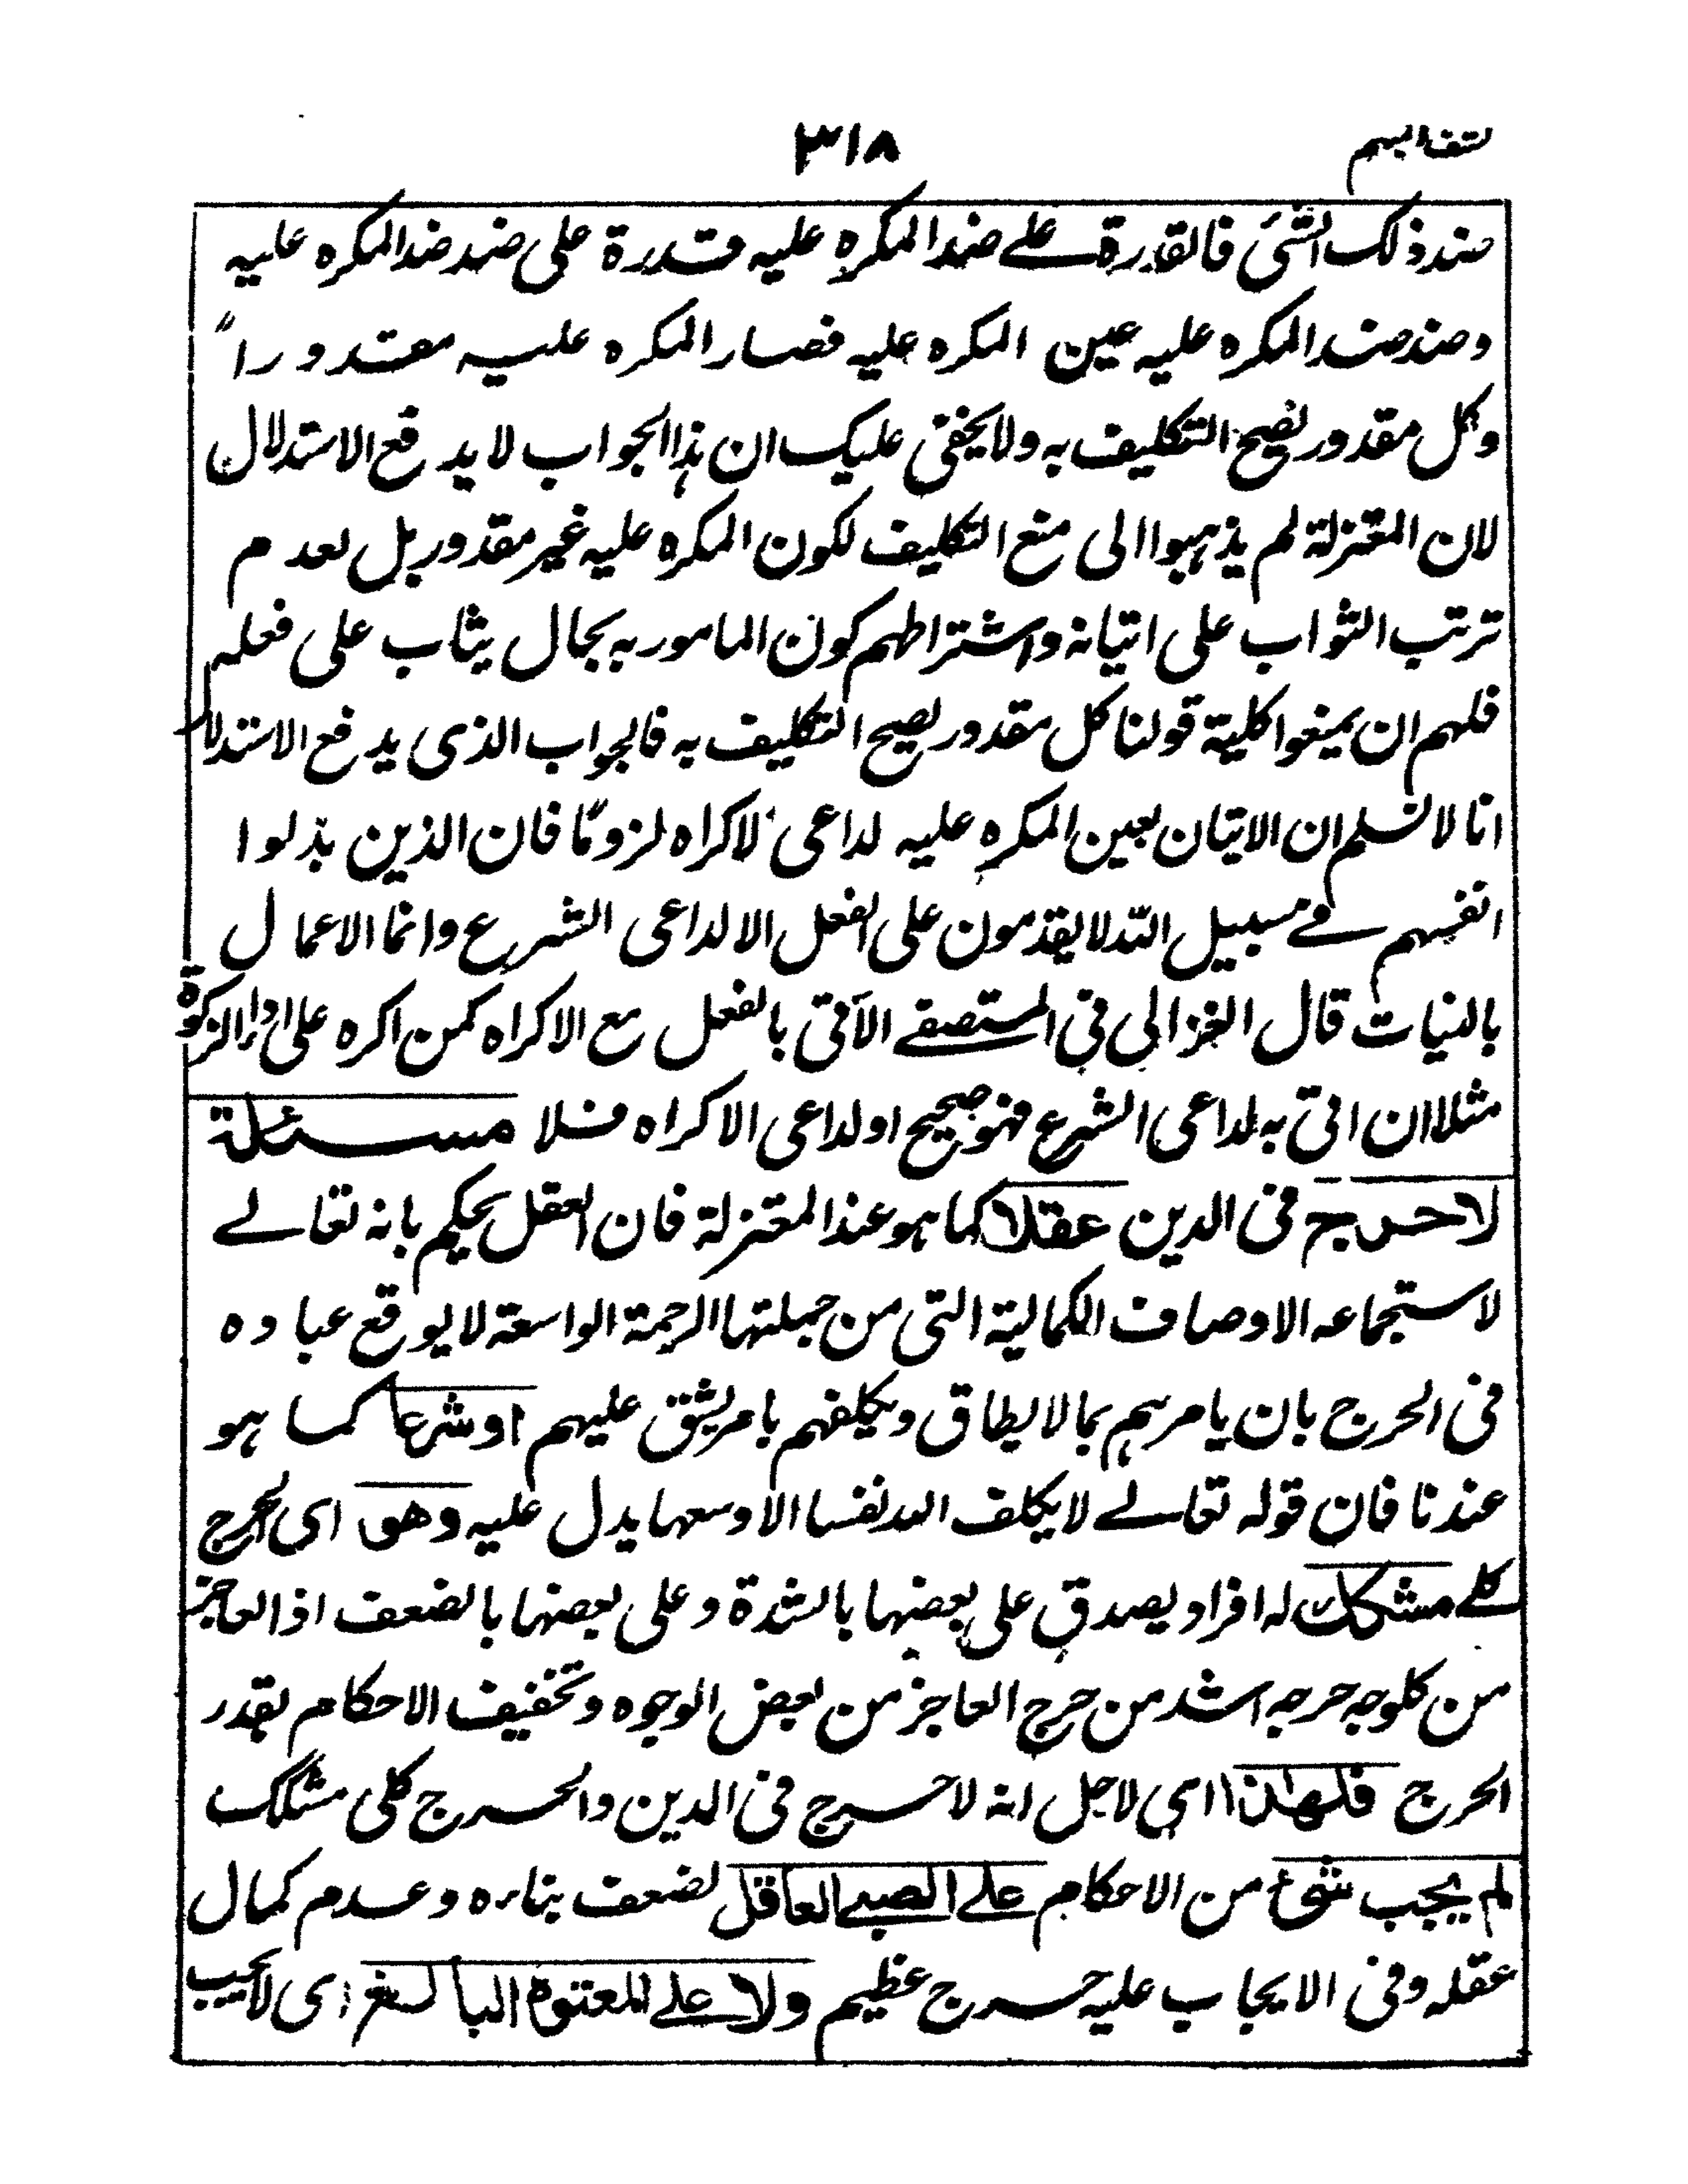 كشف المبهم ٣١٨
ضد ذلك الشئ فالقدرة على ضد المكره عليه قدرة على ضد ضد المكره عليه
وضد ضد المكره عليه عين المكره عليه فصار المكره عليه مقدوراً
وكل مقدور يصح التكليف به ولا يخفى عليك ان هذا الجواب لا يدفع الاستدلال
لان المعتزلة لم يذهبوا الى منع التكليف لكون المكره عليه غير مقدور بل لعدم
ترتب الثواب على اتيانه واشتراطهم كون المامور به بحال يثاب على فعله
فلهم ان يمنعوا كلية قولنا كل مقدور يصح التكليف به فالجواب الذى يدفع الاستدلال
انا لا نسلم ان الاتيان بعين المكره عليه لداعى الاكراه لزومًا فان الذين بذلوا
انفسهم في سبيل الله لا يقدمون على الفعل الا لداعى الشرع وانما الاعمال
بالنيات قال الغزالى فى المستصفے الآتى بالفعل مع الاكراه كمن اكره على اداء الزكوة
مثلا ان اتى به لداعى الشرع فهو صحيح او لداعى الاكراه فلا مسئلة
لا حرج فى الدين عقلا كما هو عند المعتزلة فان العقل يحكم بانه تعالے
لاستجماعه الاوصاف الكمالية التى من جملتها الرحمة الواسعة لا يوقع عباده
فى الحرج بان يامرهم بما لا يطاق ويكلفهم بامر يشق عليهم او شرعا كما هو
عندنا فان قوله تعالے لا يكلف الله نفسا الا وسعها يدل عليه وهو اى الحرج
كلے مشكك له افراد يصدق على بعضها بالشدة وعلى بعضها بالضعف اذ العاجز
من كل وجه حرجه اشد من حرج العاجز من بعض الوجوه وتخفيف الاحكام بقدر
الحرج فلهذا اى لاجل انه لا حرج فى الدين والحرج كلى مشكك
لم يجب شئ من الاحكام علے الصبے العاقل لضعف بناءه وعدم كمال
عقله وفى الايجاب عليه حرج عظيم ولا علے المعتوه البالغ اى لا يجب